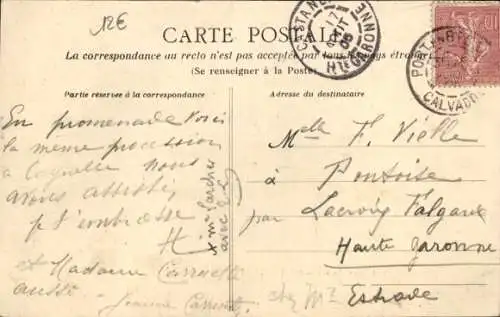 12€
CARTE POSTALE
La correspondance au recto n'est pas acceptée par tous les pays étrangers
(Se renseigner à la Poste)
CASTANET
17
AOUT
05
HTE GARONNE
PORT
CALVADOS
10
Partie réservée à la correspondance
Adresse du destinataire
En promenade Voici
la même procession
à laquelle nous
avons assisté
je t'embrasse
H
et Madame
aussi
avec
Melle F. Vielle
à Pontoise
par Lacroix Falgarde
Haute Garonne
chez Mr Estrade